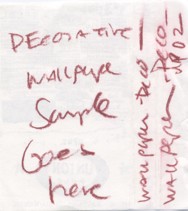 DECORATIVE
WALLPAPER
Sample
Goes
here
WALLPAPER - DECO -
WALLPAPER - DECO